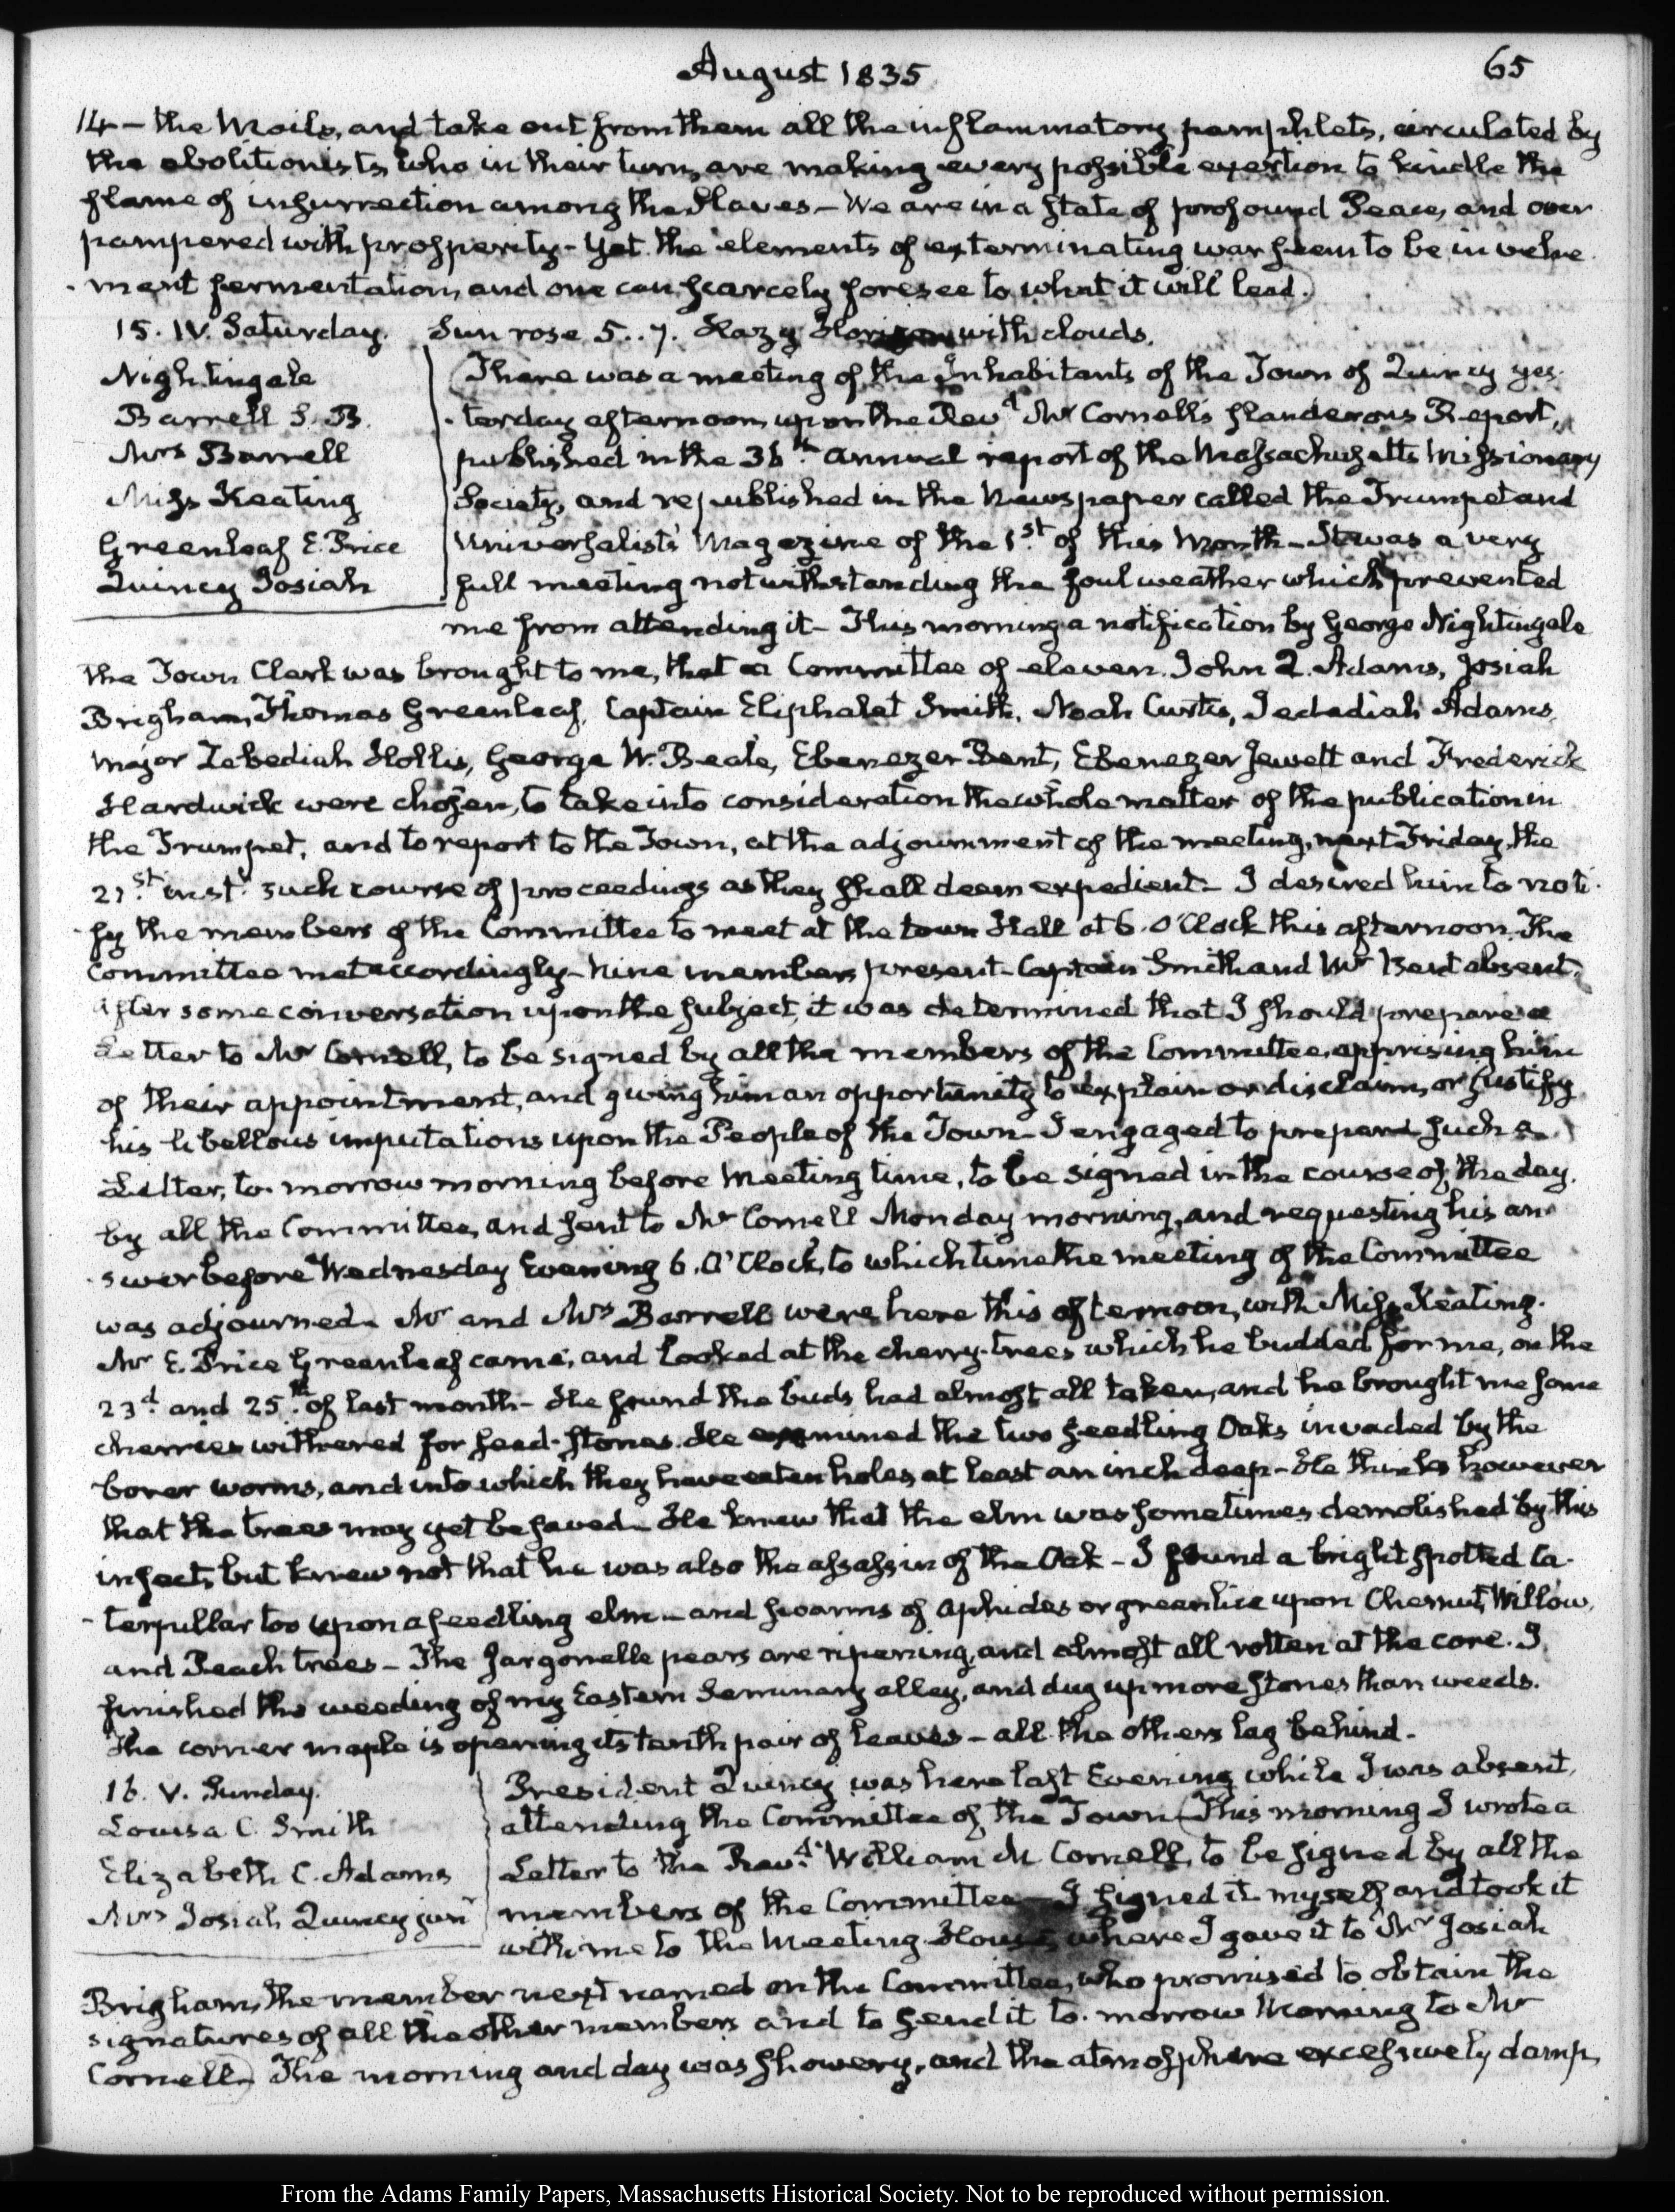 August 1835
65
14 — the Mails, and take out from them all the inflammatory pamphlets, circulated by
the abolitionists, who in their turn, are making every possible exertion to kindle the
flame of insurrection among the Slaves — We are in a state of profound Peace, and over
pampered with prosperity - Yet the elements of exterminating war seem to be in vehe-
-ment fermentation, and one can scarcely foresee to what it will lead.)
15. IV. Saturday. Sun rose 5..7. Hazy Horizon with clouds.
Nightingale
Barrell S. B.
Mrs Barrell
Miss Keating
Greenleaf E. Price
Quincy Josiah
(There was a meeting of the Inhabitants of the Town of Quincy yes-
-terday afternoon, upon the Revd Mr Cornell's slanderous Report,
published in the 36th annual report of the Massachusetts Missionary
Society, and republished in the Newspaper called the Trumpet and
Universalists' Magazine of the 1st of this Month — It was a very
full meeting notwithstanding the foul weather which prevented
me from attending it — This morning a notification by George Nightingale
the Town Clerk was brought to me, that a Committee of eleven. John Q. Adams, Josiah
Brigham, Thomas Greenleaf, Captain Eliphalet Smith, Noah Curtis, Jedediah Adams,
Major Zebediah Hollis, George W. Beale, Ebenezer Bent, Ebenezer Jewett and Frederick
Hardwick were chosen, to take into consideration the whole matter of the publication in
the Trumpet, and to report to the Town, at the adjournment of the meeting, next Friday, the
21st inst. such course of proceedings as they shall deem expedient — I desired him to noti-
-fy the members of the Committee to meet at the town Hall at 6. O'Clock this afternoon. The
Committee met accordingly — Nine members present — Captain Smith and Mr Bent absent.
After some conversation upon the subject, it was determined that I should prepare a
Letter to Mr Cornell, to be signed by all the members of the Committee, apprising him
of their appointment, and giving him an opportunity to explain or disclaim, or justify
his libellous imputations upon the People of the Town — I engaged to prepare such a
Letter, to-morrow morning before Meeting time, to be signed in the course of the day,
by all the Committee, and sent to Mr Cornell Monday morning, and requesting his an-
-swer before Wednesday Evening 6. O'Clock, to which time the meeting of the Committee
was adjourned — Mr and Mrs Barrell were here this afternoon, with Miss Keating.
Mr E. Price Greenleaf came, and looked at the cherry-trees which he budded for me, on the
23d and 25th of last month — He found the buds had almost all taken, and he brought me some
cherries withered for seed-stones. He examined the two seedling Oaks invaded by the
borer worms, and into which they have eaten holes, at least an inch deep — He thinks however
that the trees may yet be saved — He knew that the elm was sometimes demolished by this
insect, but knew not that he was also the assassin of the Oak — I found a bright spotted ca-
-terpillar too upon a seedling elm — and swarms of aphides or green lice upon Chesnut, Willow,
and Peach trees — The Jargonelle pears are ripening, and almost all rotten at the core. I
finished the weeding of my Eastern Seminary alley, and dug up more stones than weeds.
The corner maple is opening its tenth pair of leaves — all the others lag behind.
16. V. Sunday.
Louisa C. Smith
Elizabeth C. Adams
Mrs Josiah Quincy junr
President Quincy was here last Evening while I was absent,
attending the Committee of the Town (This morning I wrote a
Letter to the Revd William M Cornell, to be signed by all the
members of the Committee — I signed it myself and took it
with me to the Meeting House, where I gave it to Mr Josiah
Brigham, the member next named on the Committee, who promised to obtain the
signatures of all the other members and to send it to-morrow Morning to Mr
Cornell.) The morning and day was showery, and the atmosphere excessively damp,
From the Adams Family Papers, Massachusetts Historical Society. Not to be reproduced without permission.